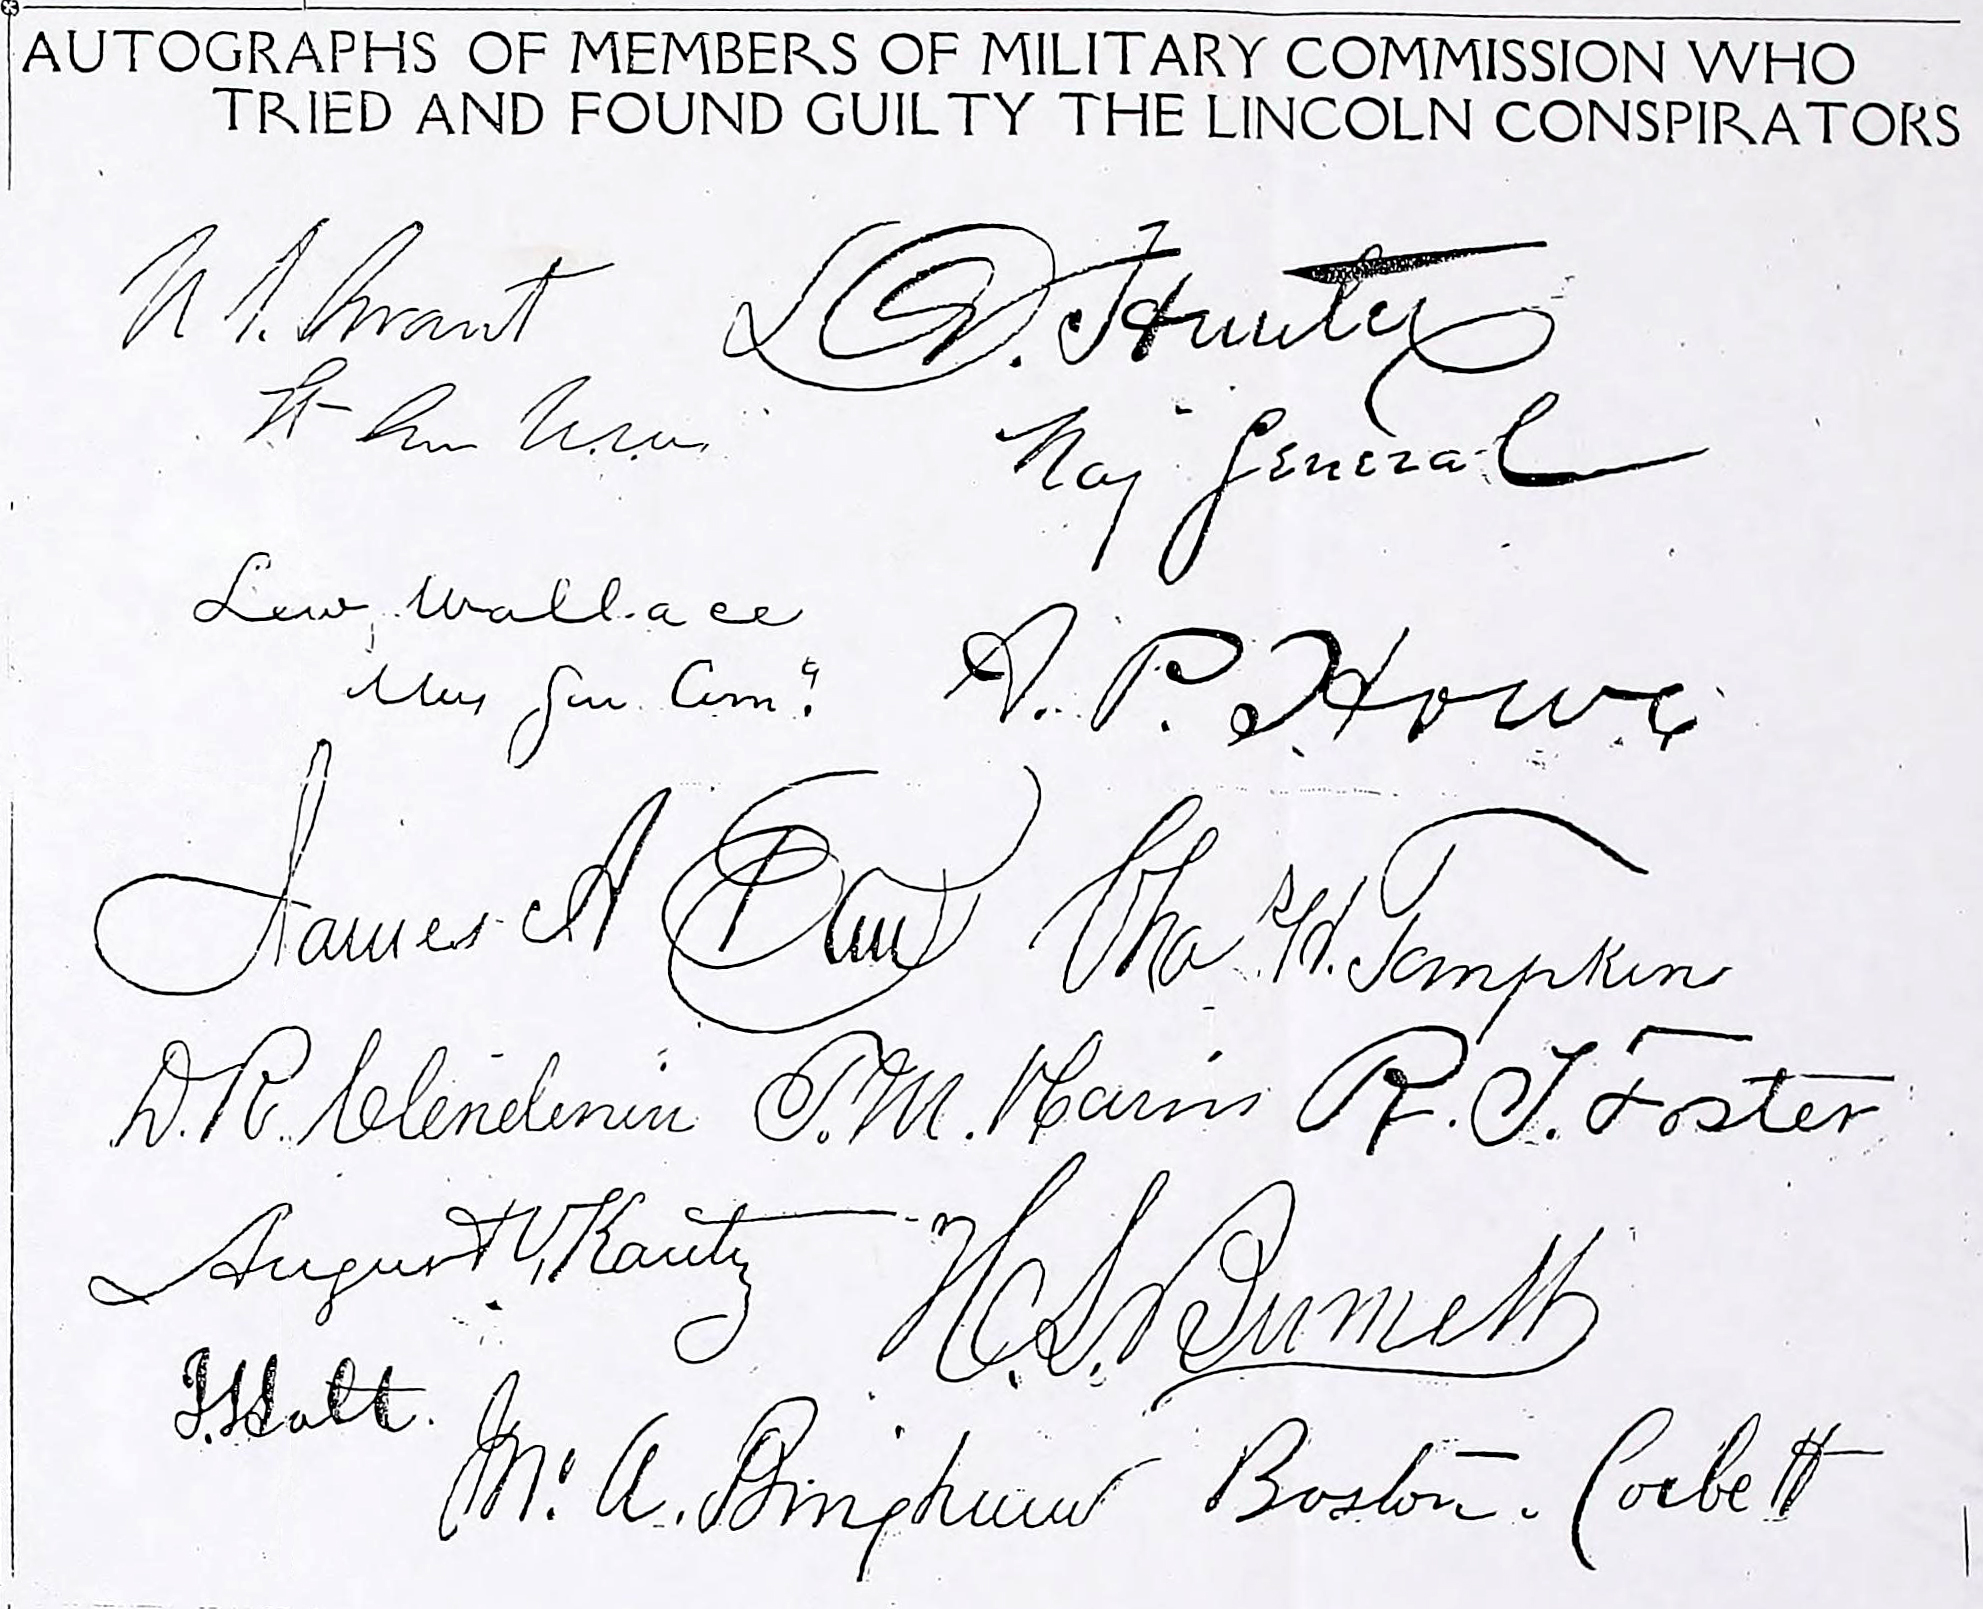 AUTOGRAPHS OF MEMBERS OF MILITARY COMMISSION WHO
TRIED AND FOUND GUILTY THE LINCOLN CONSPIRATORS
U. S. Grant
Lt Gen U.S.A.
D. Hunter
Maj General
Lew Wallace
Maj Gen Com'd
A. P. Howe
James A Ekin
Cha s H. Tompkins
D. R. Clendenin T. M. Harris R. S. Foster
August V. Kautz
H. L. Burnett
J. Holt.
Jno. A. Bingham
Boston. Corbett